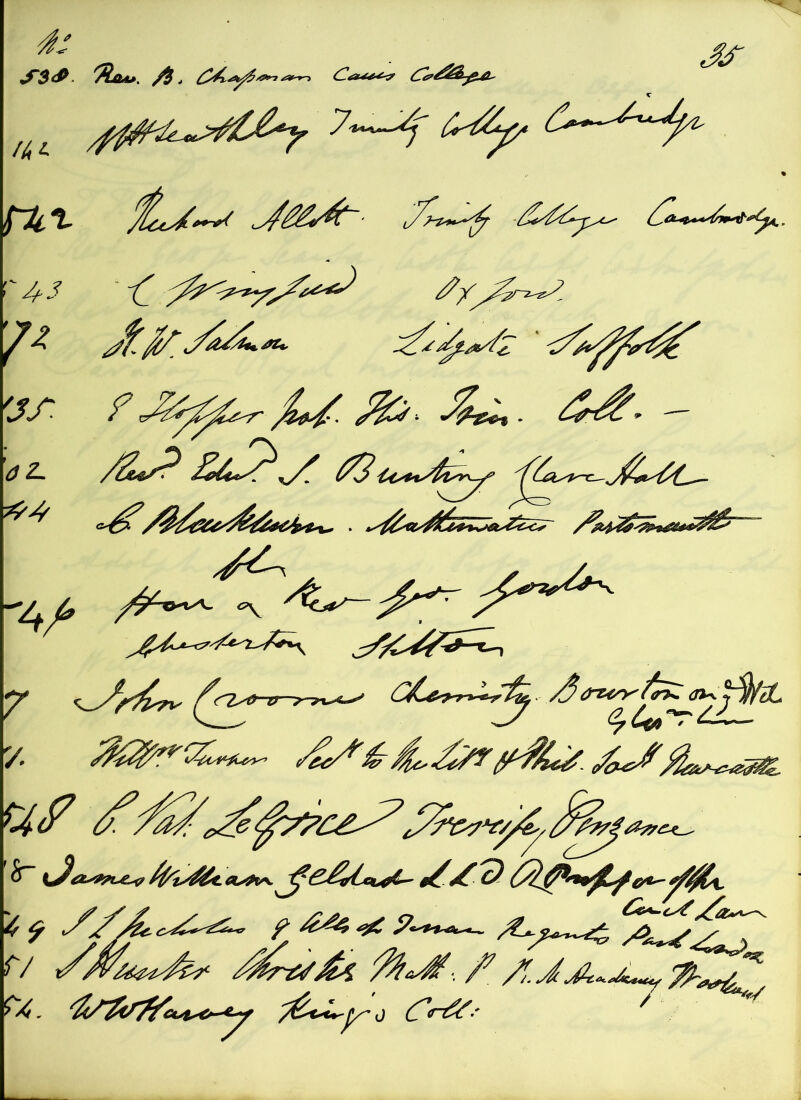 No 35
538. Rev. B. Chapman Caius College
142 Trinity College Cambridge
542 Richard Allott. Trinity College Cambridge.
543 C Wingfield Oxford.
72 H. W. Salmon Lidgate Suffolk
135. E Hopper Nat. His. Trin. Coll. —
02 Revd. Edwd. S. Bunting Clare Hall
44 C. Blackburn. Mathematics Portsmouth
46 Hon a Rev Geo. Gordon
Chesterton Stilton
7 John Croome Chemistry Bourton on ye
1. Willm. Turner Secy to the Lity & Phil. Socy Newcastle
548 C. Val. LeGrice Trereife, Penzance
18 James William Geldart L L D Professor of the
Civil Law
49 Nicholas 9 Terrace Regents Park London
51 S Hunter Christie Math. P. R. M. Academy Woolwich
54. W W Harvey King's Coll: